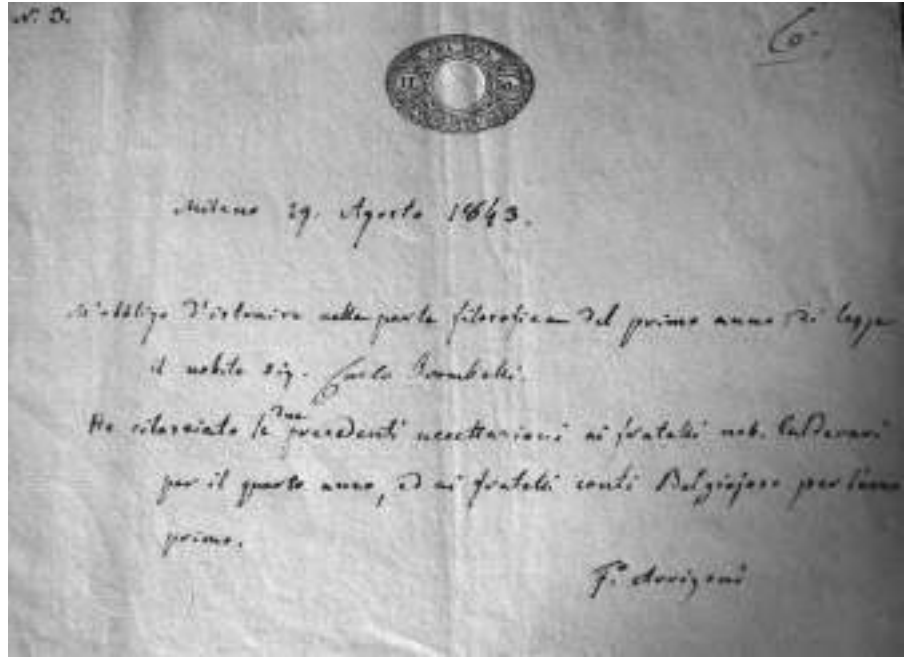 N. 3.
Milano 29. Agosto 1843.
M'obbligo d'istruire nella parte filosofica del primo anno di legge
il nobile sig. Carlo
Ho rilasciato le due precedenti accettazioni ai fratelli nob. Calderari
per il quarto anno, ed ai fratelli conti Belgiojoso per l'anno
primo.
F. Arrigoni